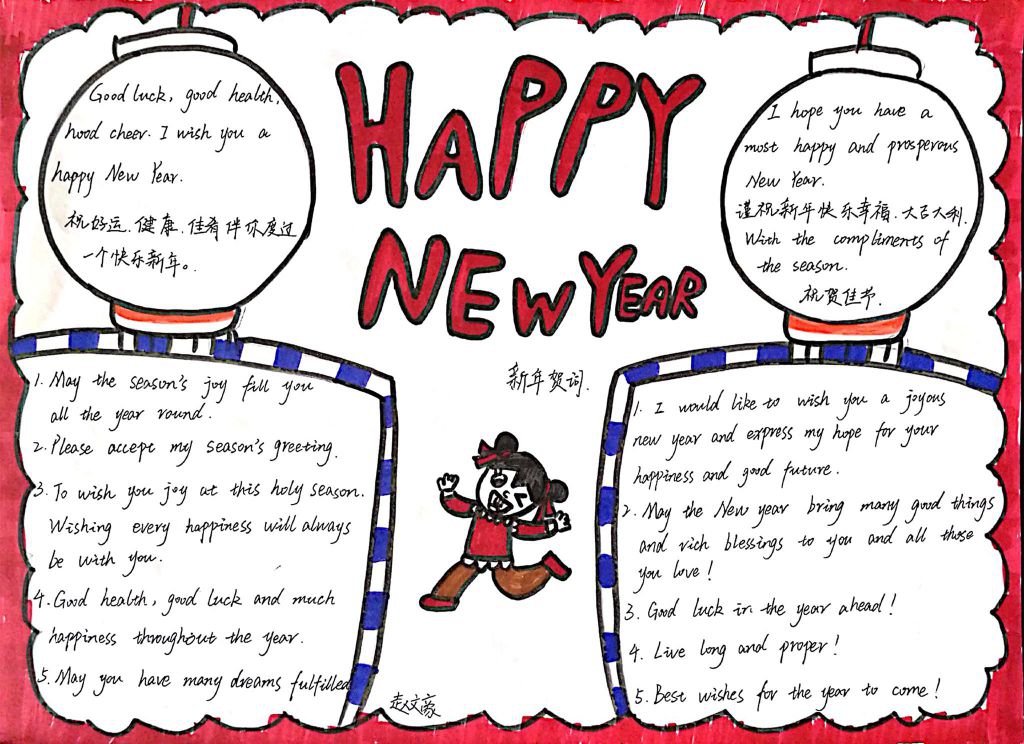 HAPPY
NEW YEAR
新年贺词.
Good luck, good health,
hood cheer. I wish you a
happy New Year.
祝好运.健康.佳肴伴你度过
一个快乐新年。
I hope you have a
most happy and prosperous
New Year.
谨祝新年快乐幸福.大吉大利.
With the compliments of
the season.
祝贺佳节.
1. May the season's joy fill you
all the year round.
2. Please accept my season's greeting.
3. To wish you joy at this holy season.
Wishing every happiness will always
be with you.
4. Good health, good luck and much
happiness throughout the year.
5. May you have many dreams fulfilled
1. I would like to wish you a joyous
new year and express my hope for your
happiness and good future.
2. May the New year bring many good things
and rich blessings to you and all those
you love!
3. Good luck in the year ahead!
4. Live long and proper!
5. Best wishes for the year to come!
赵文豪